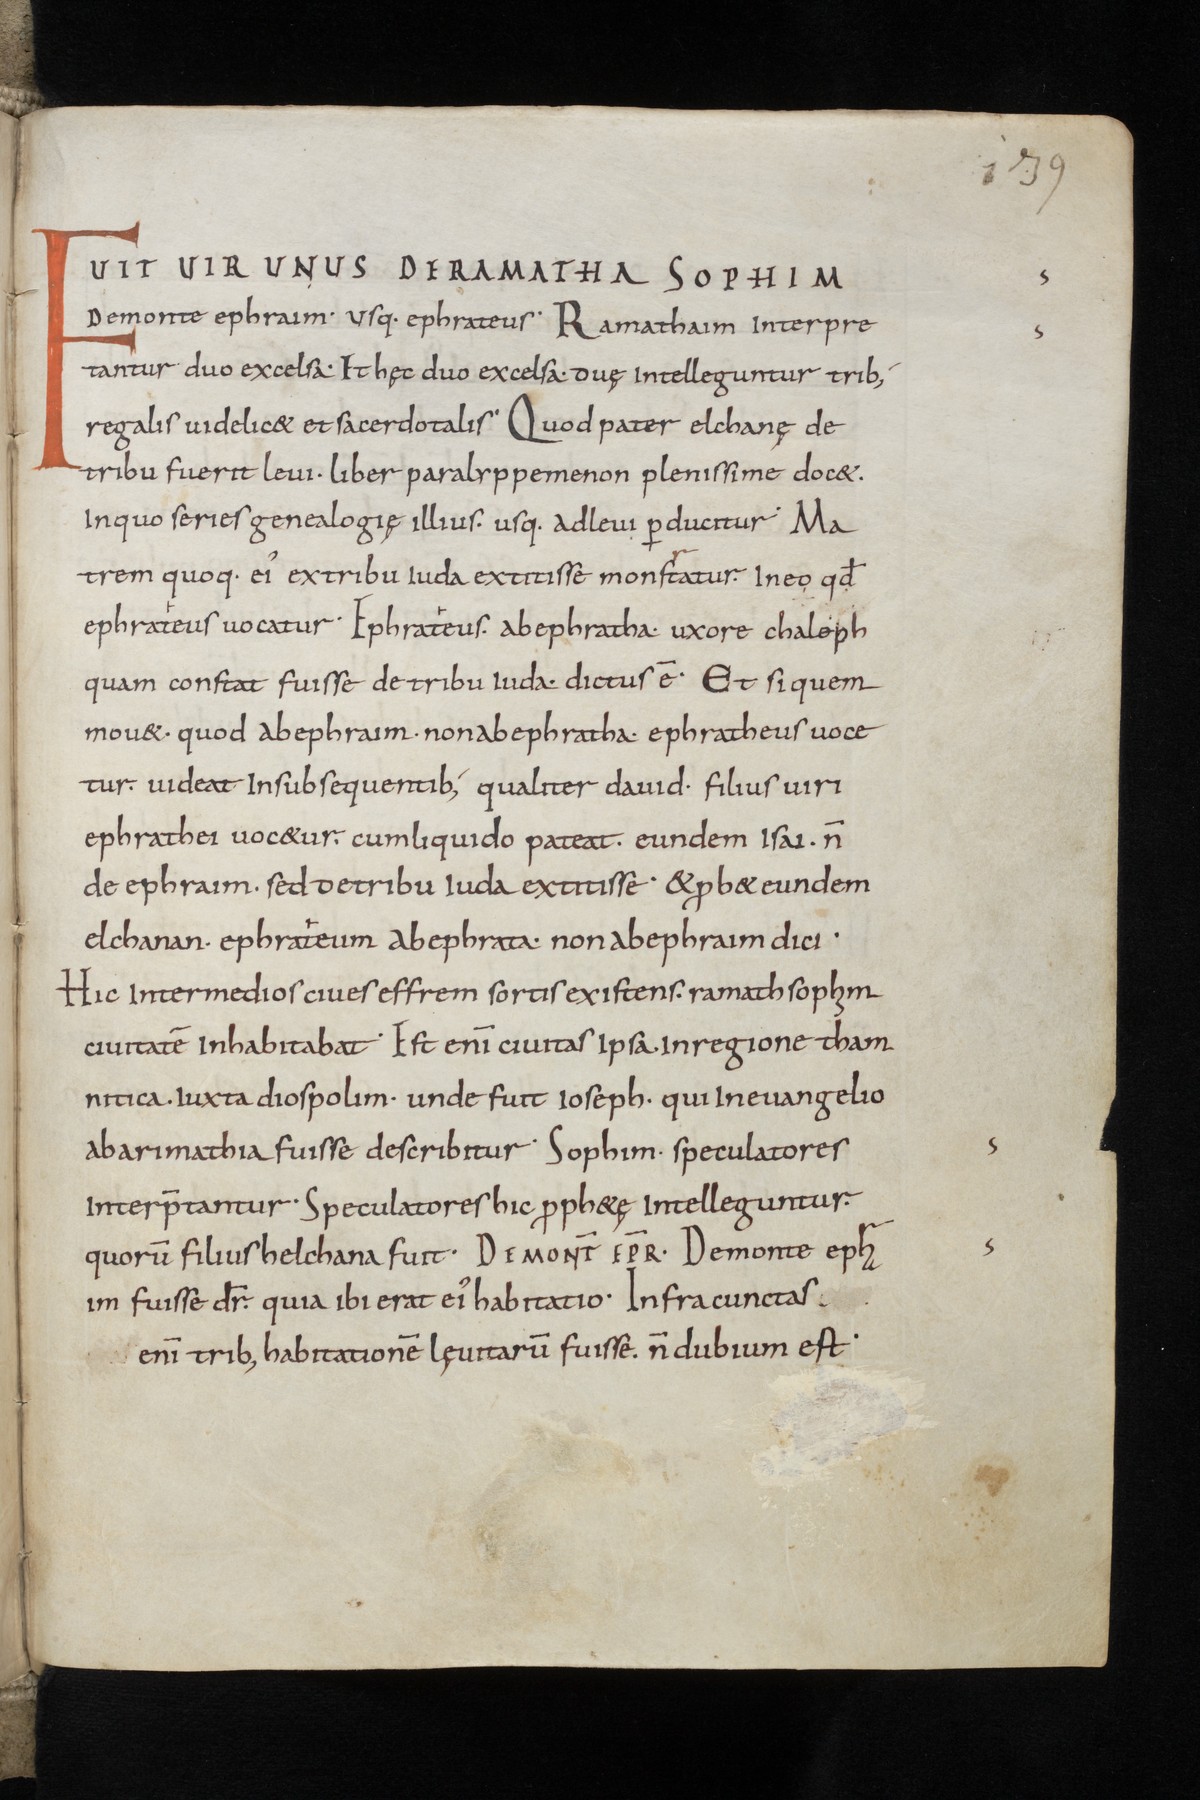 139
FUIT UIR UNUS DERAMATHA SOPHIM
Demonte ephraim· Usq· ephrateus· Ramathaim Interpre
tantur duo excelsa· Et hęc duo excelsa· duę Intelleguntur trib;
regalis uidelic& et sacerdotalis· Quod pater elchanę de
tribu fuerit leui· liber paralyppemenon plenissime doc&·
Inquo series genealogię illius· usq· adleui ꝑducitur· Ma
trem quoq· ei᾽ extribu Iuda extitisse monstratur· Ineo qđ
ephrateus uocatur· Ephrateus· abephratha· uxore chaleph
quam constat fuisse detribu Iuda· dictus ē· Et si quem
mou&· quod abephraim· nonabephratha· ephratheus uoce
tur· uideat Insubsequentib; qualiter dauid· filius uiri
ephrathei uoc&ur· cumliquido pateat· eundem Isai· n̄
de ephraim· sed detribu Iuda extitisse· &ꝓb& eundem
elchanan· ephrateum abephrata· non abephraim dici·
Hic Intermedios ciues effrem sortis existens· ramathsophim
ciuitatē Inhabitabat· Est enī ciuitas Ipsa· Inregione tham
nitica· Iuxta diospolim· unde fuit Ioseph· qui Ineuangelio
abarimathia fuisse describitur· Sophim· speculatores
Interp̄tantur· Speculatores hic ꝓph&ę Intelleguntur·
quorū filius helchana fuit· DEMONT̄ EP̄R· Demonte ephra
im fuisse dr̄· quia ibi erat ei᾽ habitatio· Infra cunctas
enī trib; habitationē lęuitarū fuisse· n̄ dubium est·